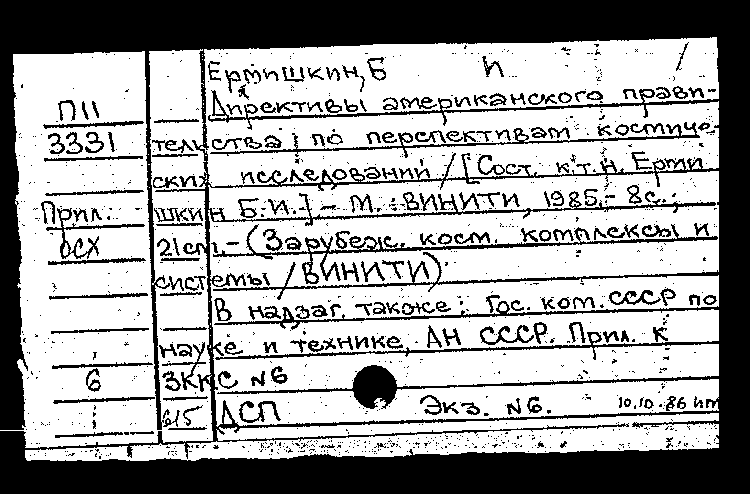 Ермишкин, Б И
П11 Директивы американского прави-
3331 тельства по перспективам космиче-
ских исследований / [Сост. к.т.н. Ерми
Прил. шкин Б.И.] - М. : ВИНИТИ, 1985. - 8с.;
осх 21см. - (Зарубеж. косм. комплексы и
системы / ВИНИТИ)
В надзаг. также: Гос. ком. СССР по
науке и технике, АН СССР. Прил. к
6 ЗККС №6
615 ДСП Экз. №6. 10.10.86